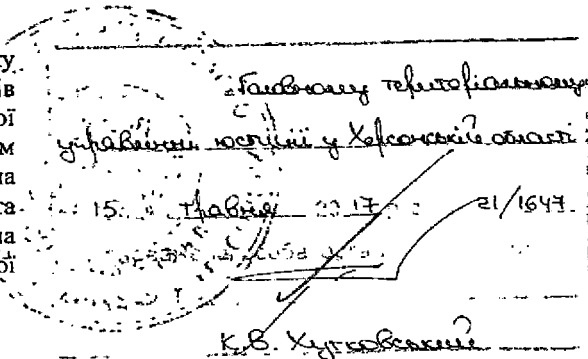 у
в
ої
м
на
та
на
ої
Головному територіальному
управлінні юстиції у Херсонській області
15 травня 2017 21/1647
К.В. Хутковський